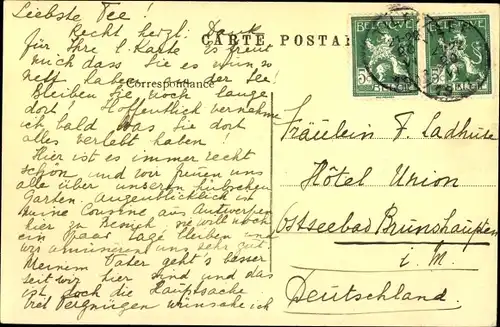 Liebste Fee!
CARTE POSTALE
Correspondance
Recht herzl. Dank
für Ihre l. Karte. Es freut
mich dass Sie es wunso
nett haben an der See!
Bleiben Sie noch lange
dort! Hoffentlich vernehme
ich bald was Sie dort
alles verlebt haben!
Hier ist es immer recht
schön und wir freuen uns
alle über unseren hübschen
Garten. Augenblicklich ist
meine Cousine aus Antwerpen
hier zu Besuch, sie will noch
ein paar Tage bleiben und
wir amüsieren uns sehr gut.
Meinem Vater geht's besser
seit wir hier sind und das
ist doch die Hauptsache.
Viel Vergnügen wünsche ich
BELGIQUE
5c 5c
BELGIË
BELGIQUE
5c 5c
BELGIË
Fräulein F. Ladhuse
Hôtel Union
Ostseebad Brunshaupten
i. M.
Deutschland.